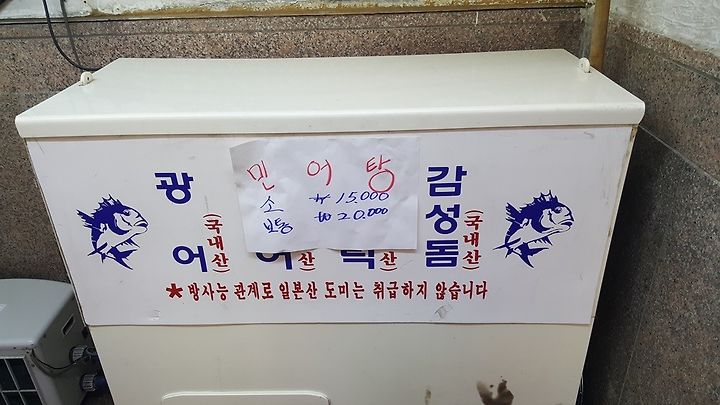 민어탕
소 ₩15.000
보통 ₩20.000
광어(국내산)
감성돔(국내산)
*방사능 관계로 일본산 도미는 취급하지 않습니다